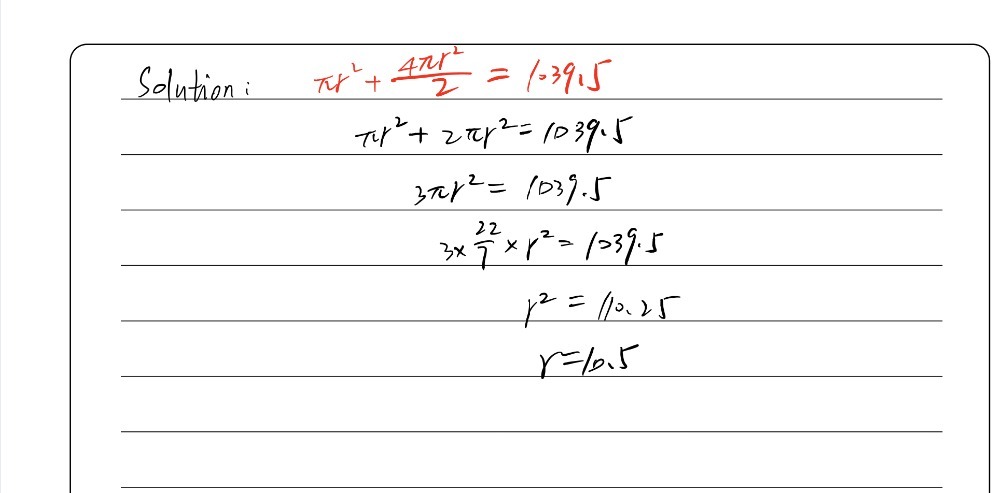 Solution: πr² + 4πr²/2 = 1039.5
πr² + 2πr² = 1039.5
3πr² = 1039.5
3 × 22/7 × r² = 1039.5
r² = 110.25
r = 10.5